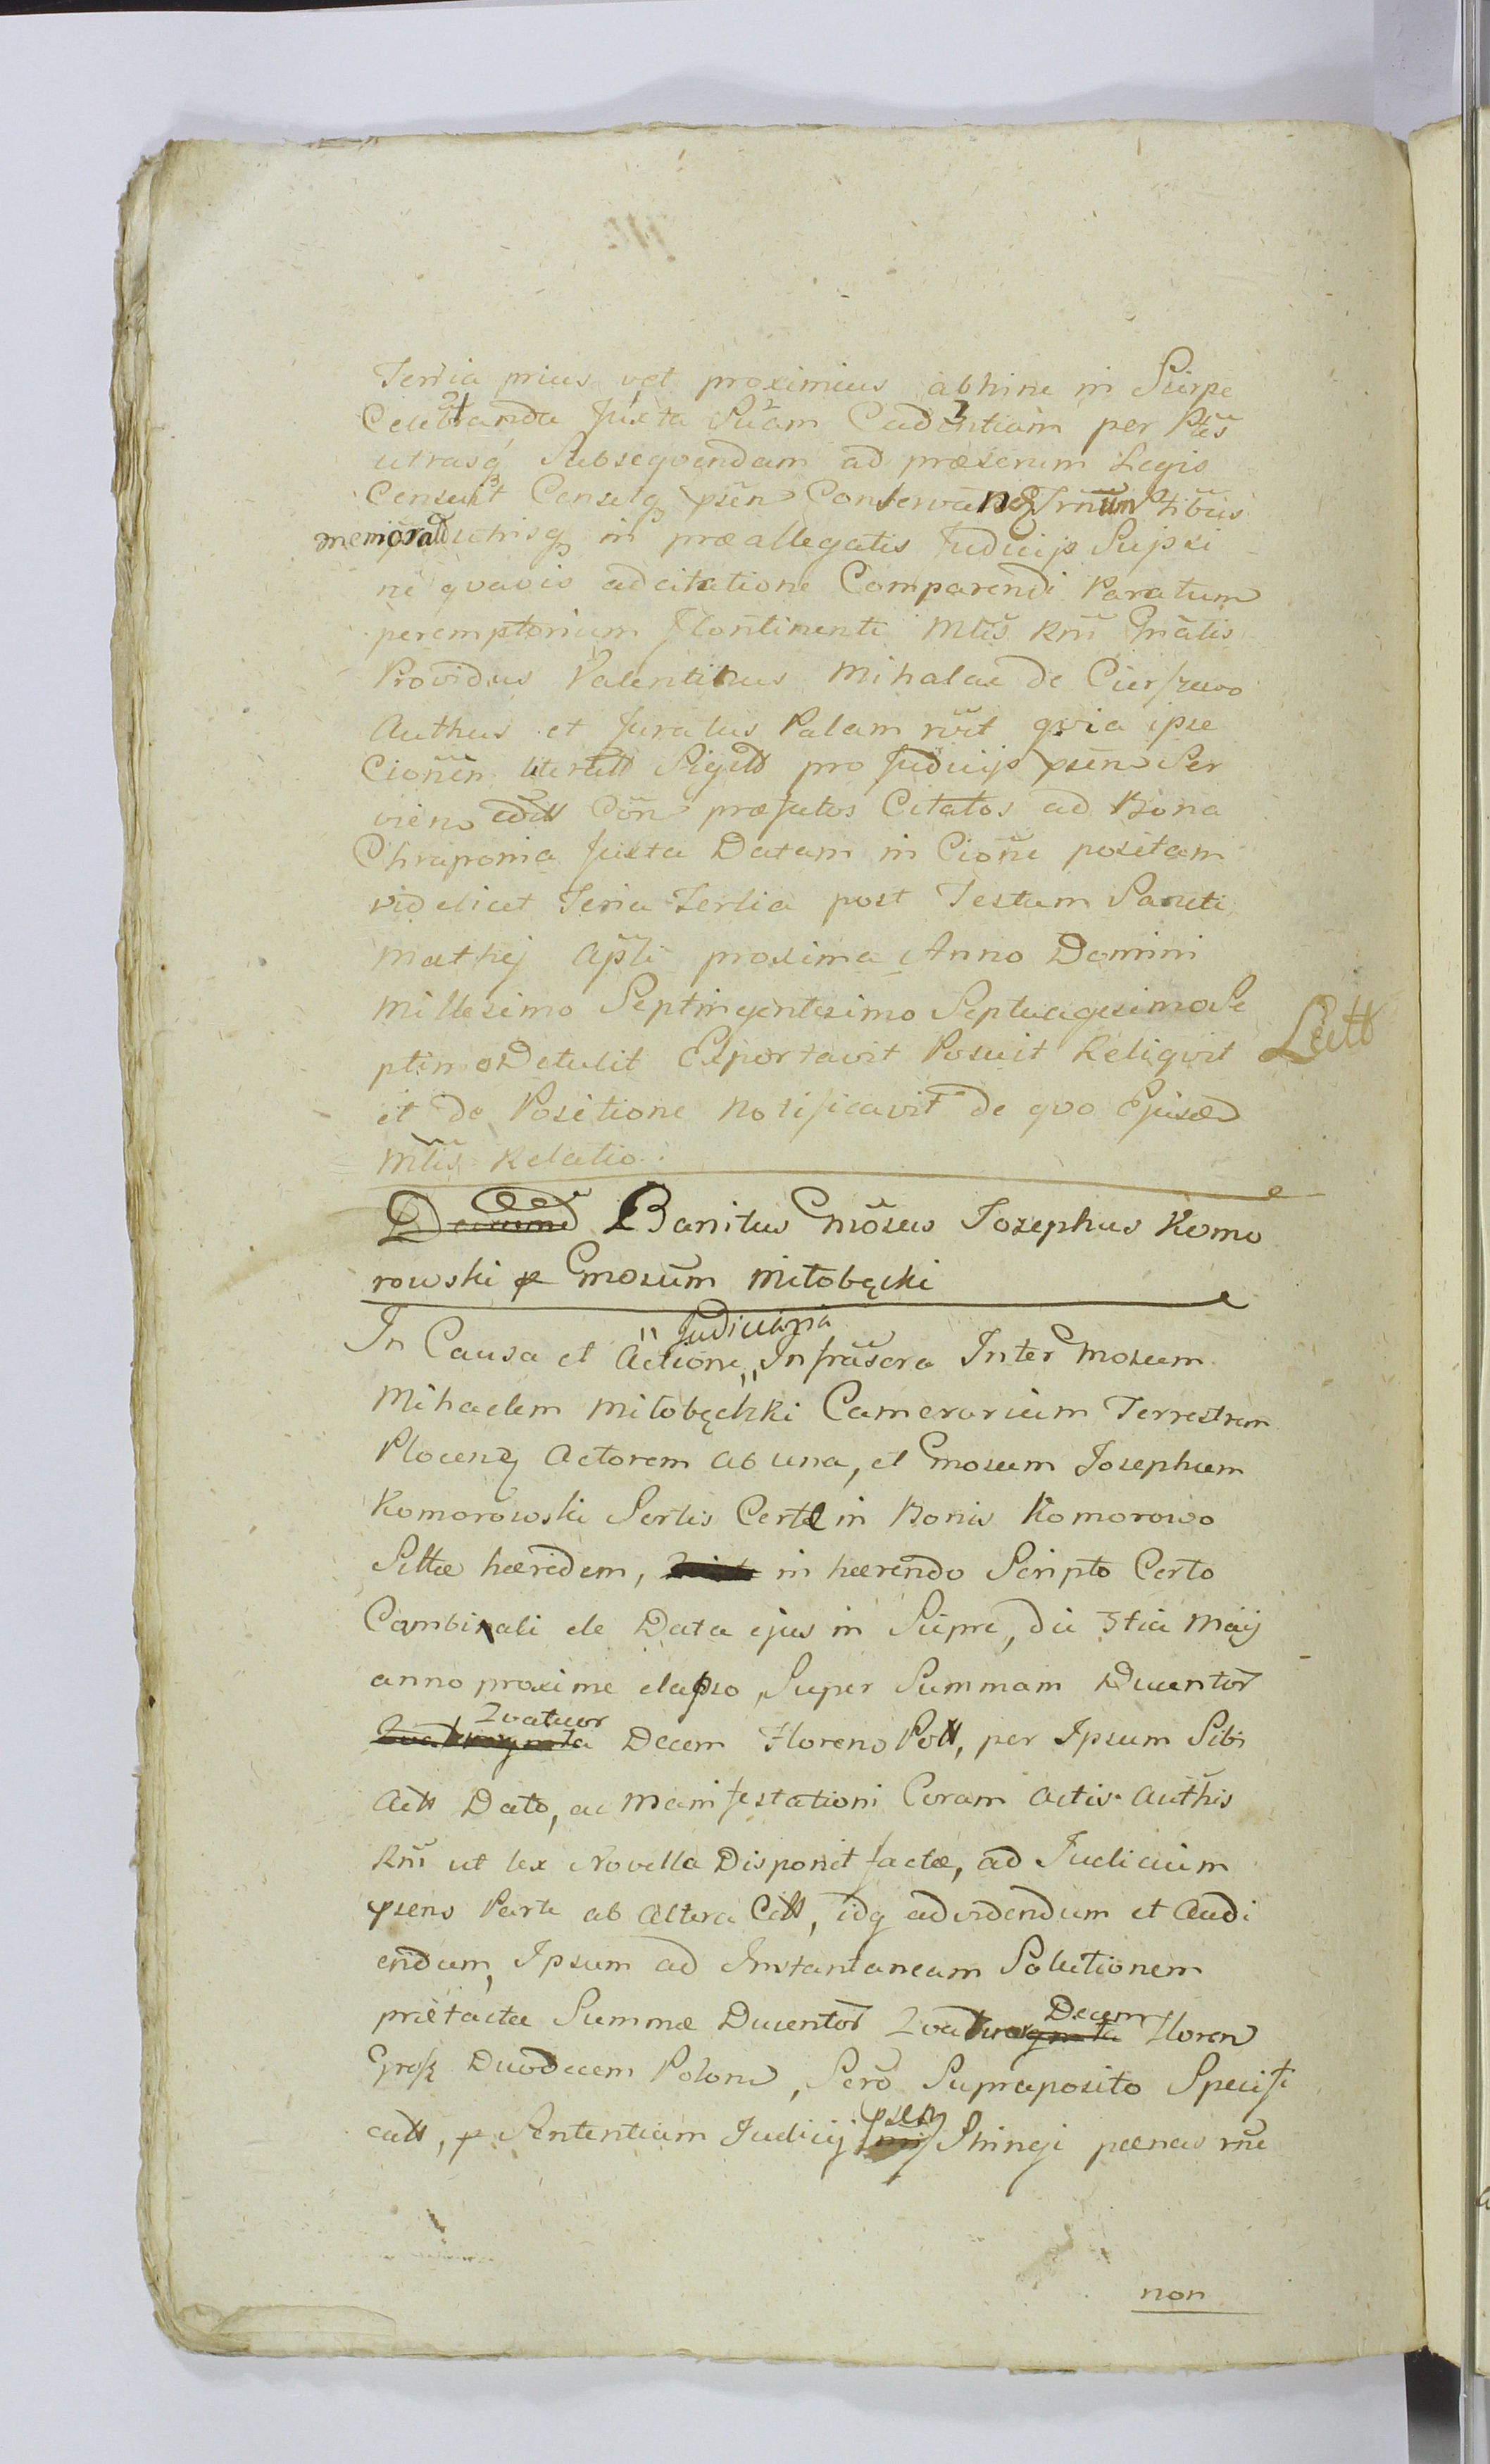 Terria prius vel proximius abhinc in Sierpc
Celebranda juxta Suam Cadentiam per Ptes
utrasq Subseqvendam ad proxenum Legis
Censuit Censetq psen Conservan Trmum Ptibus
memorat utrisq in præallegatis Judicijs Siepci
ni qvavis adcitatione Comparendi Paratum
peremptorium Continenti Mtis Rni Gnalis
Providus Valentinus Mihalak de Cierszewo
Authus et Juratus Palam rvit qvia ipse
Cionem literatt Sigitt pro Judicijs psens Ser
viens Con præfatos Citatos ad Bona
Chraponia Juxta Datam in Cione positam
videlicet Feria Tertia post Festum Sancti
Mathej Apli proxima Anno Domini
Millesimo Septingentesimo Septuagesimo Se
ptimo Detulit Exportavit Posuit Reliqvit
Lutt
et de Positione notificavit de qvo Ejusd
Mtis Relatio.
Banitus Gnosus Josephus Komo
rowski p Gnosum Miłobęcki
In Causa et Actione Judiciaria Infrascra Inter Gnosum
Mihaelem Miłobęcki Camerarium Terrestrem
Plocens Actorem ab una, et Gnosum Josephum
Komorowski Sortis Certæ in Bonis Komorowo
Sittæ hæredem, in hærendo Scripto Certo
Cambiali de Data ejus in Sierpc, die 3tia Maij
anno proxime elapso, Super Summam Ducentor
Qvatuor Decem Floreno Poll, per Ipsum Sibi
Actt Dato, ac Manifestationi Coram Actis Authis
Rni ut lex Novella Disponit factæ, ad Judicium
psens Parte ab Altera Citt, idq ad videndum et Audi
endum, Ipsum ad Instantaneam Solutionem
prætactæ Summæ Ducentor Qvatuor Decem Floren
Gross Duodecem Polon, Scro Supraposito Specifi
catt, p Sententiam Judicij psen Stringi pænas rne
non